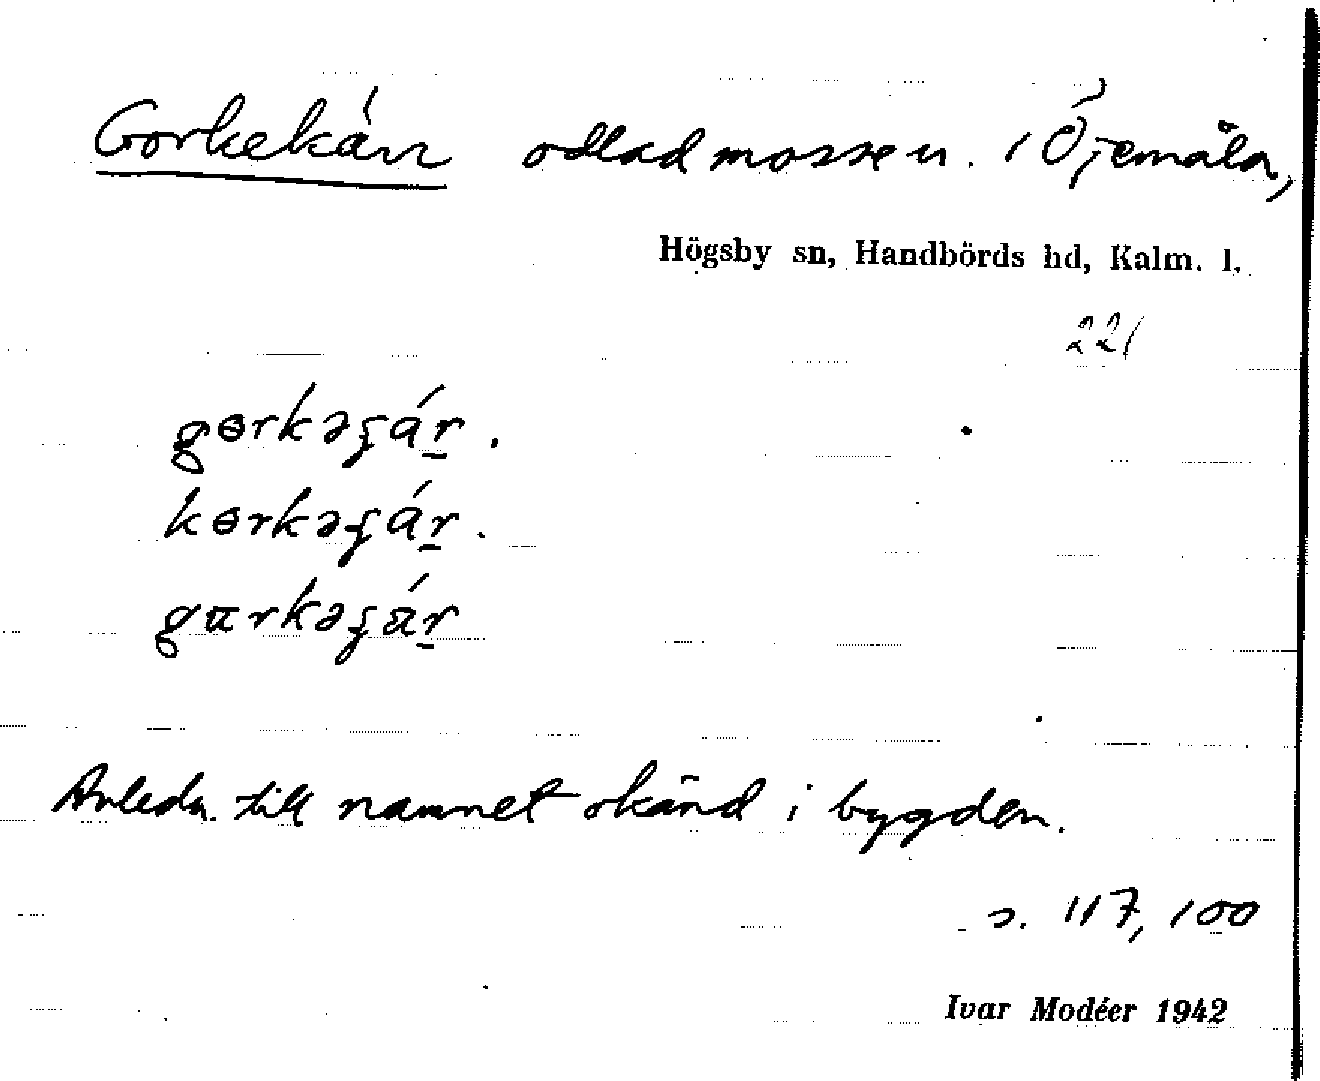 Gorkekärr odlad mosse n. i Öjemåla,
Högsby sn, Handbörds hd, Kalm. l.
221
gɵrkəʂár.
kɵrkəʂár.
gɷrkəʂár
Anledn. till namnet okänd i bygden.
s. 117, 100
Ivar Modéer 1942